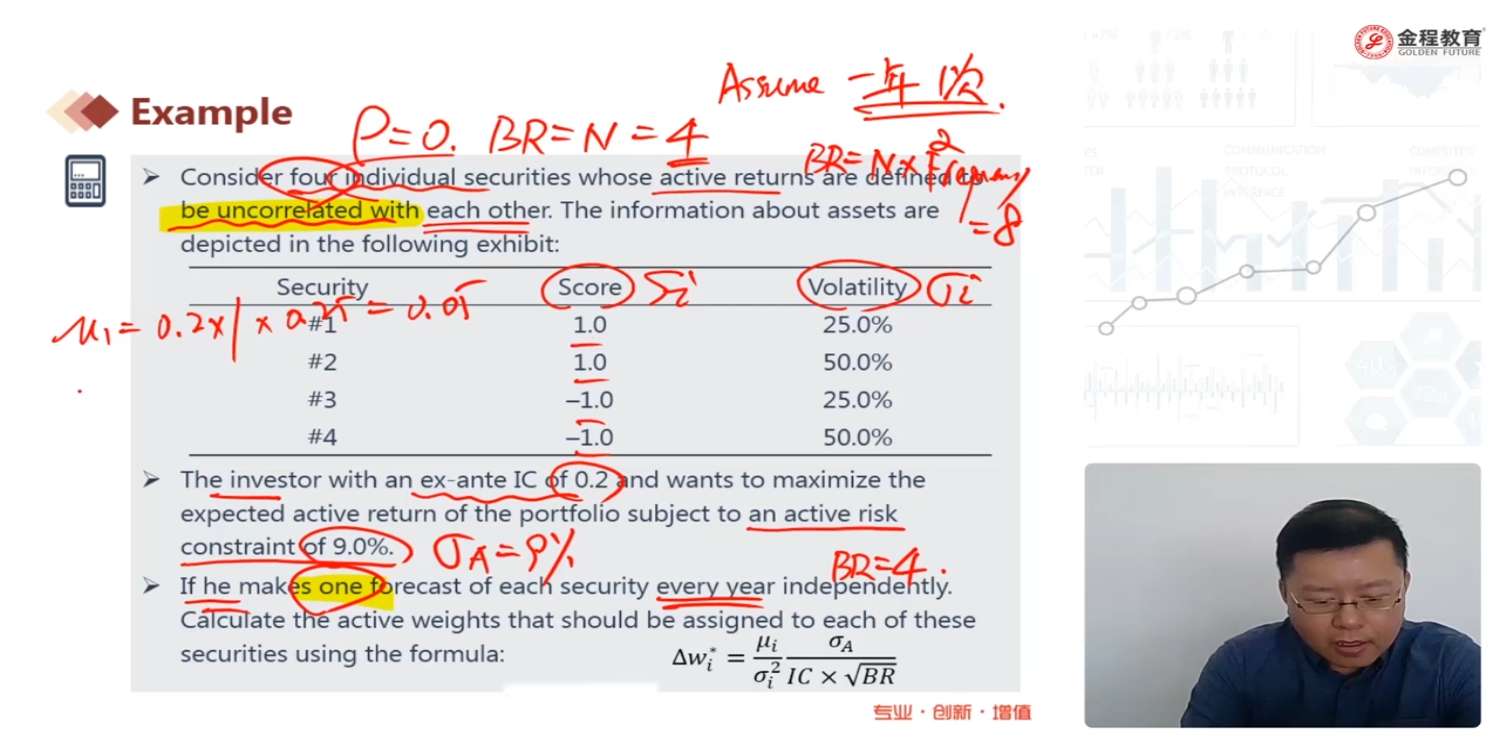 金程教育
GOLDEN FUTURE
Assume 一年1次.
Example
ρ=0. BR=N=4
BR=N×Frequency
2
=8
Consider four individual securities whose active returns are defined to
be uncorrelated with each other. The information about assets are
depicted in the following exhibit:
Security Score Si Volatility σi
μ1=0.2×1×0.25=0.05
#1 1.0 25.0%
#2 1.0 50.0%
#3 –1.0 25.0%
#4 –1.0 50.0%
The investor with an ex-ante IC of 0.2 and wants to maximize the
expected active return of the portfolio subject to an active risk
constraint of 9.0%. σA=9%
BR=4.
If he makes one forecast of each security every year independently.
Calculate the active weights that should be assigned to each of these
securities using the formula: Δw*i = μi/σ²i σA/(IC × √BR)
专业·创新·增值